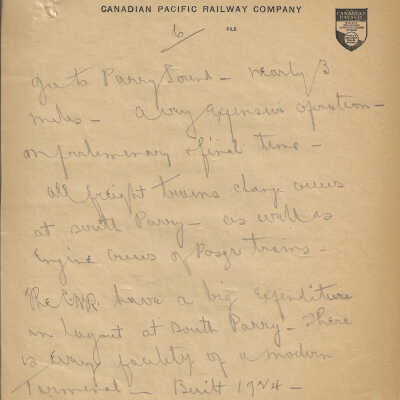 CANADIAN PACIFIC RAILWAY COMPANY
6
FILE
CANADIAN PACIFIC
go to Parry Sound - nearly 3
miles - a very Expensive operation -
on preliminary & final time -
all freight trains change crews
at South Parry - as well as
Engine crews of Passgr trains -
The C.N.R. have a big Expenditure
in layout at South Parry - There
is Every facility of a modern
Terminal - Built 1924 -